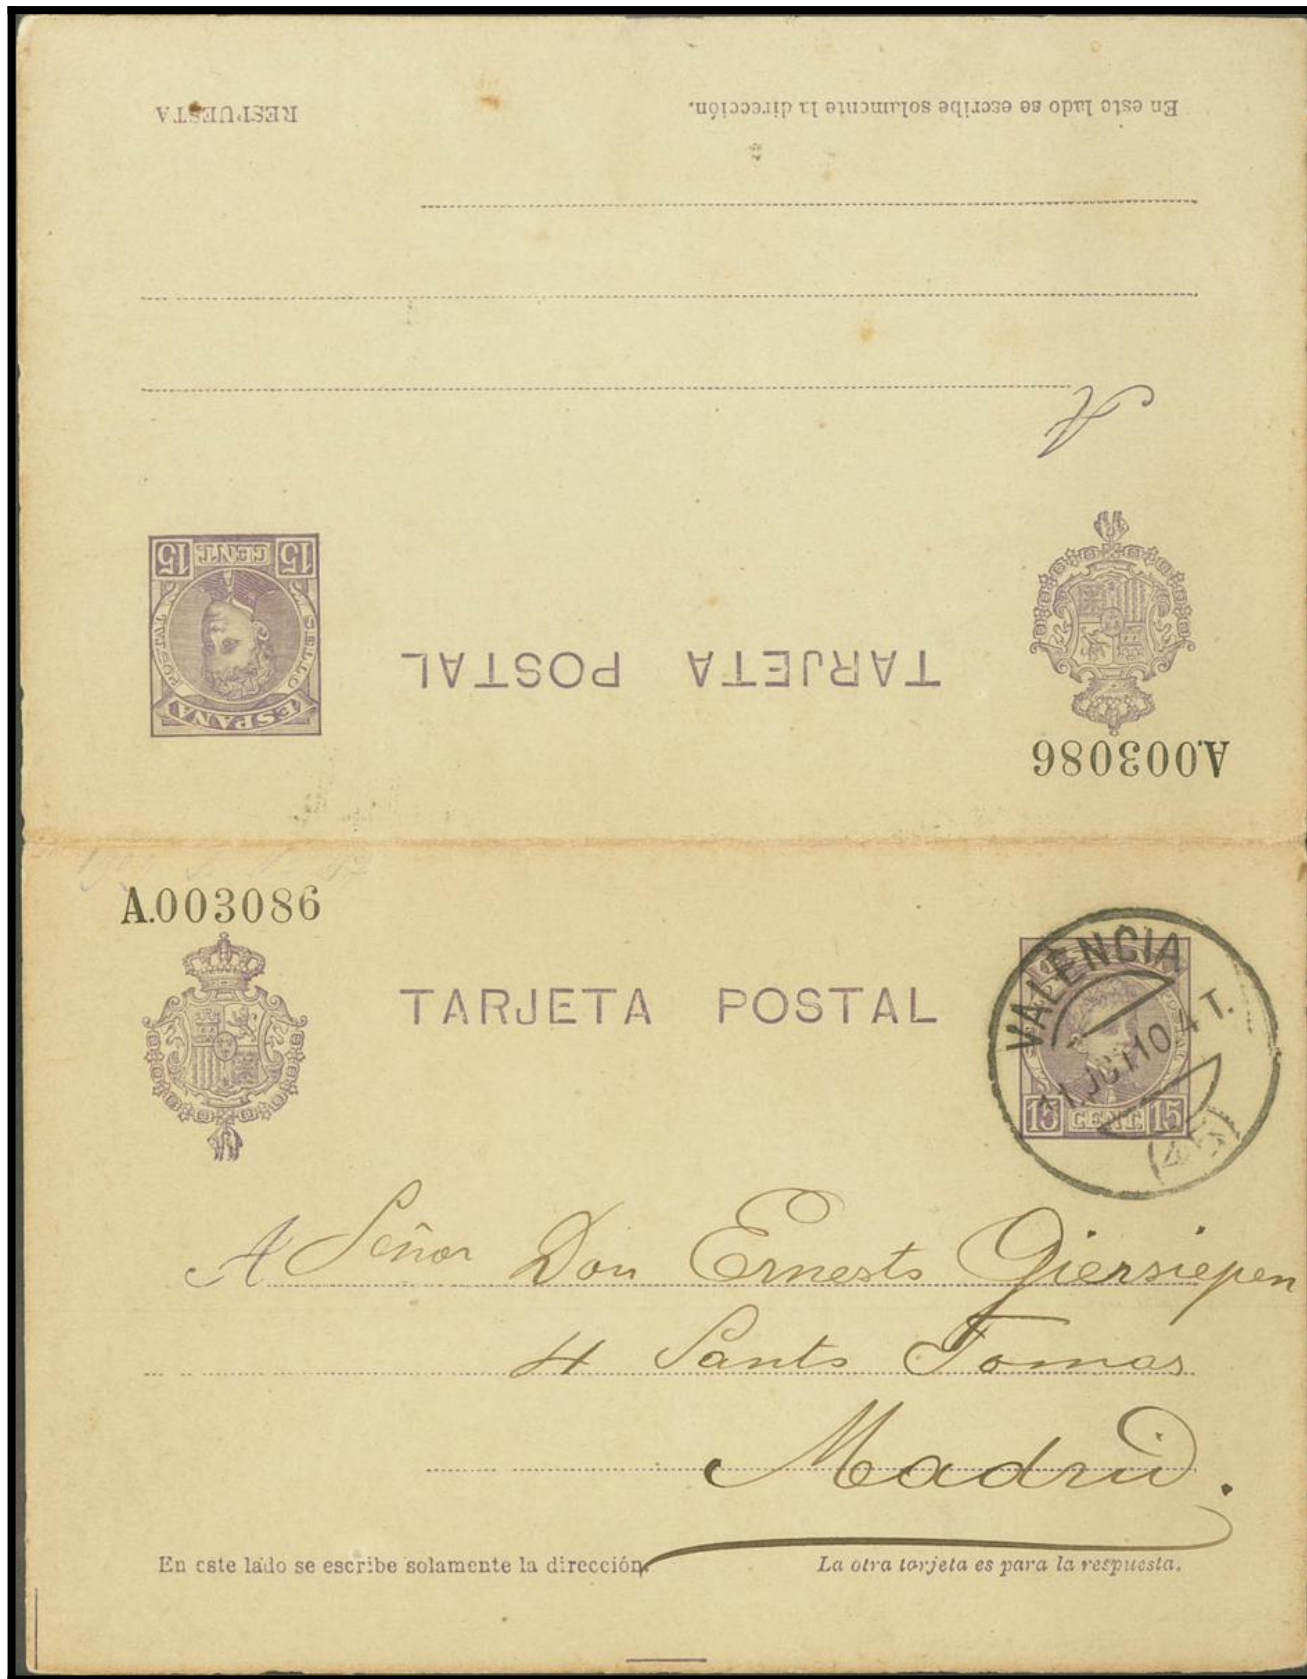 RESPUESTA
En este lado se escribe solamente la dirección.
A
TARJETA POSTAL
A.003086
ESPAÑA
SELLO POSTAL
15 CENT. 15
A.003086
TARJETA POSTAL
VALENCIA
OCT 10 4 T.
15 CENT. 15
A Señor Don Ernesto Giersiepen
4 Santo Tomas
Madrid.
En este lado se escribe solamente la dirección.
La otra tarjeta es para la respuesta.